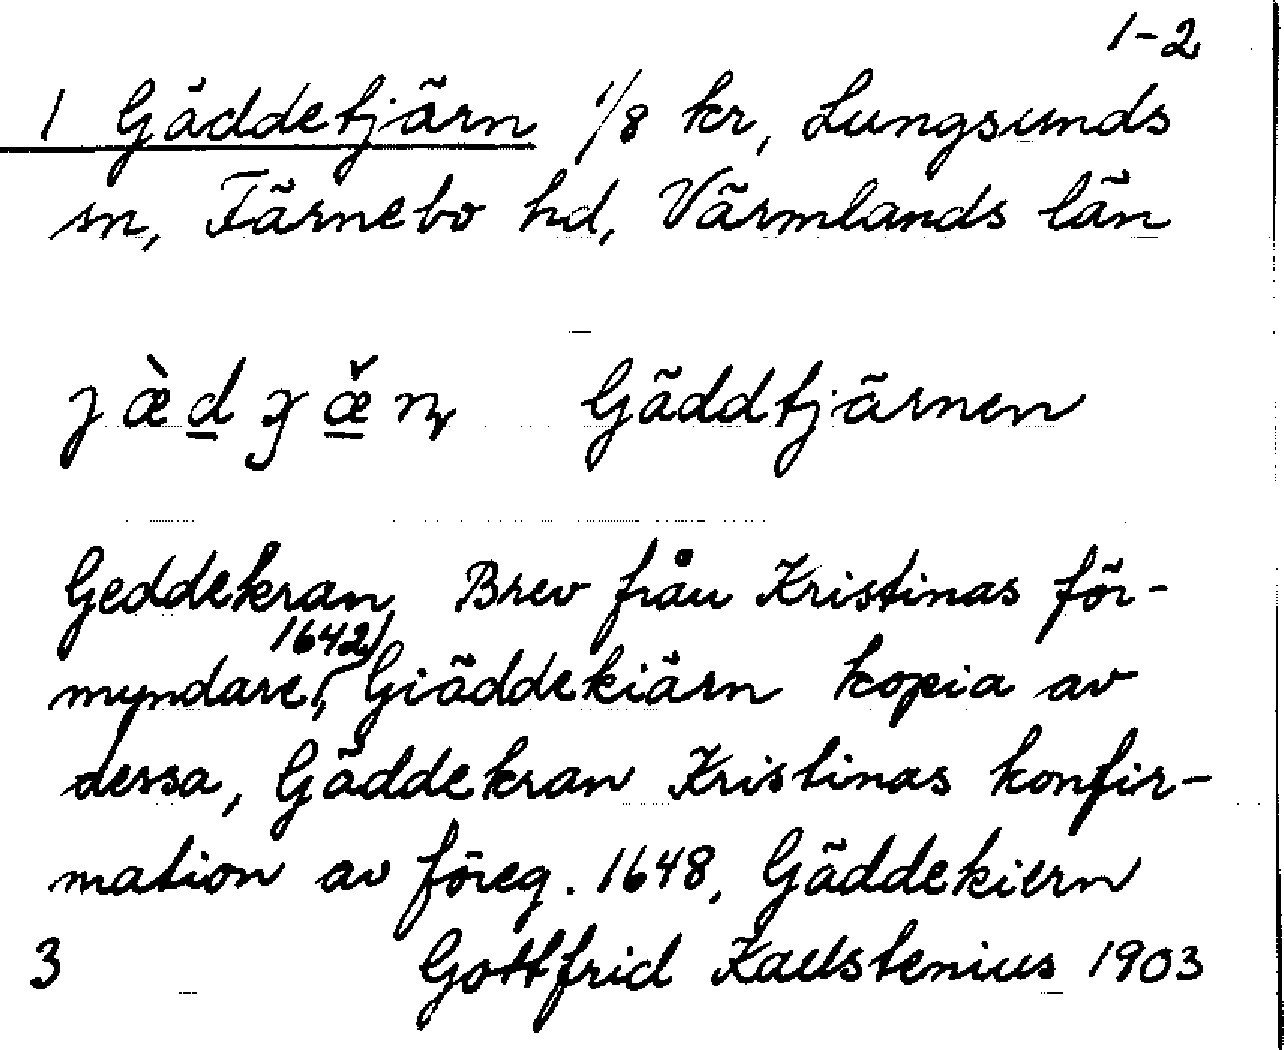 1-2
1 Gäddetjärn 1/8 kr, Lungsunds
sn, Färnebo hd, Värmlands län
Gäddtjärnen
Geddekran, Brev från Kristinas för-
1642,
myndare, Giäddekiärn kopia av
dessa, Gäddekran Kristinas konfir-
mation av föreg. 1648, Gäddekiern
3 Gottfrid Kallstenius 1903